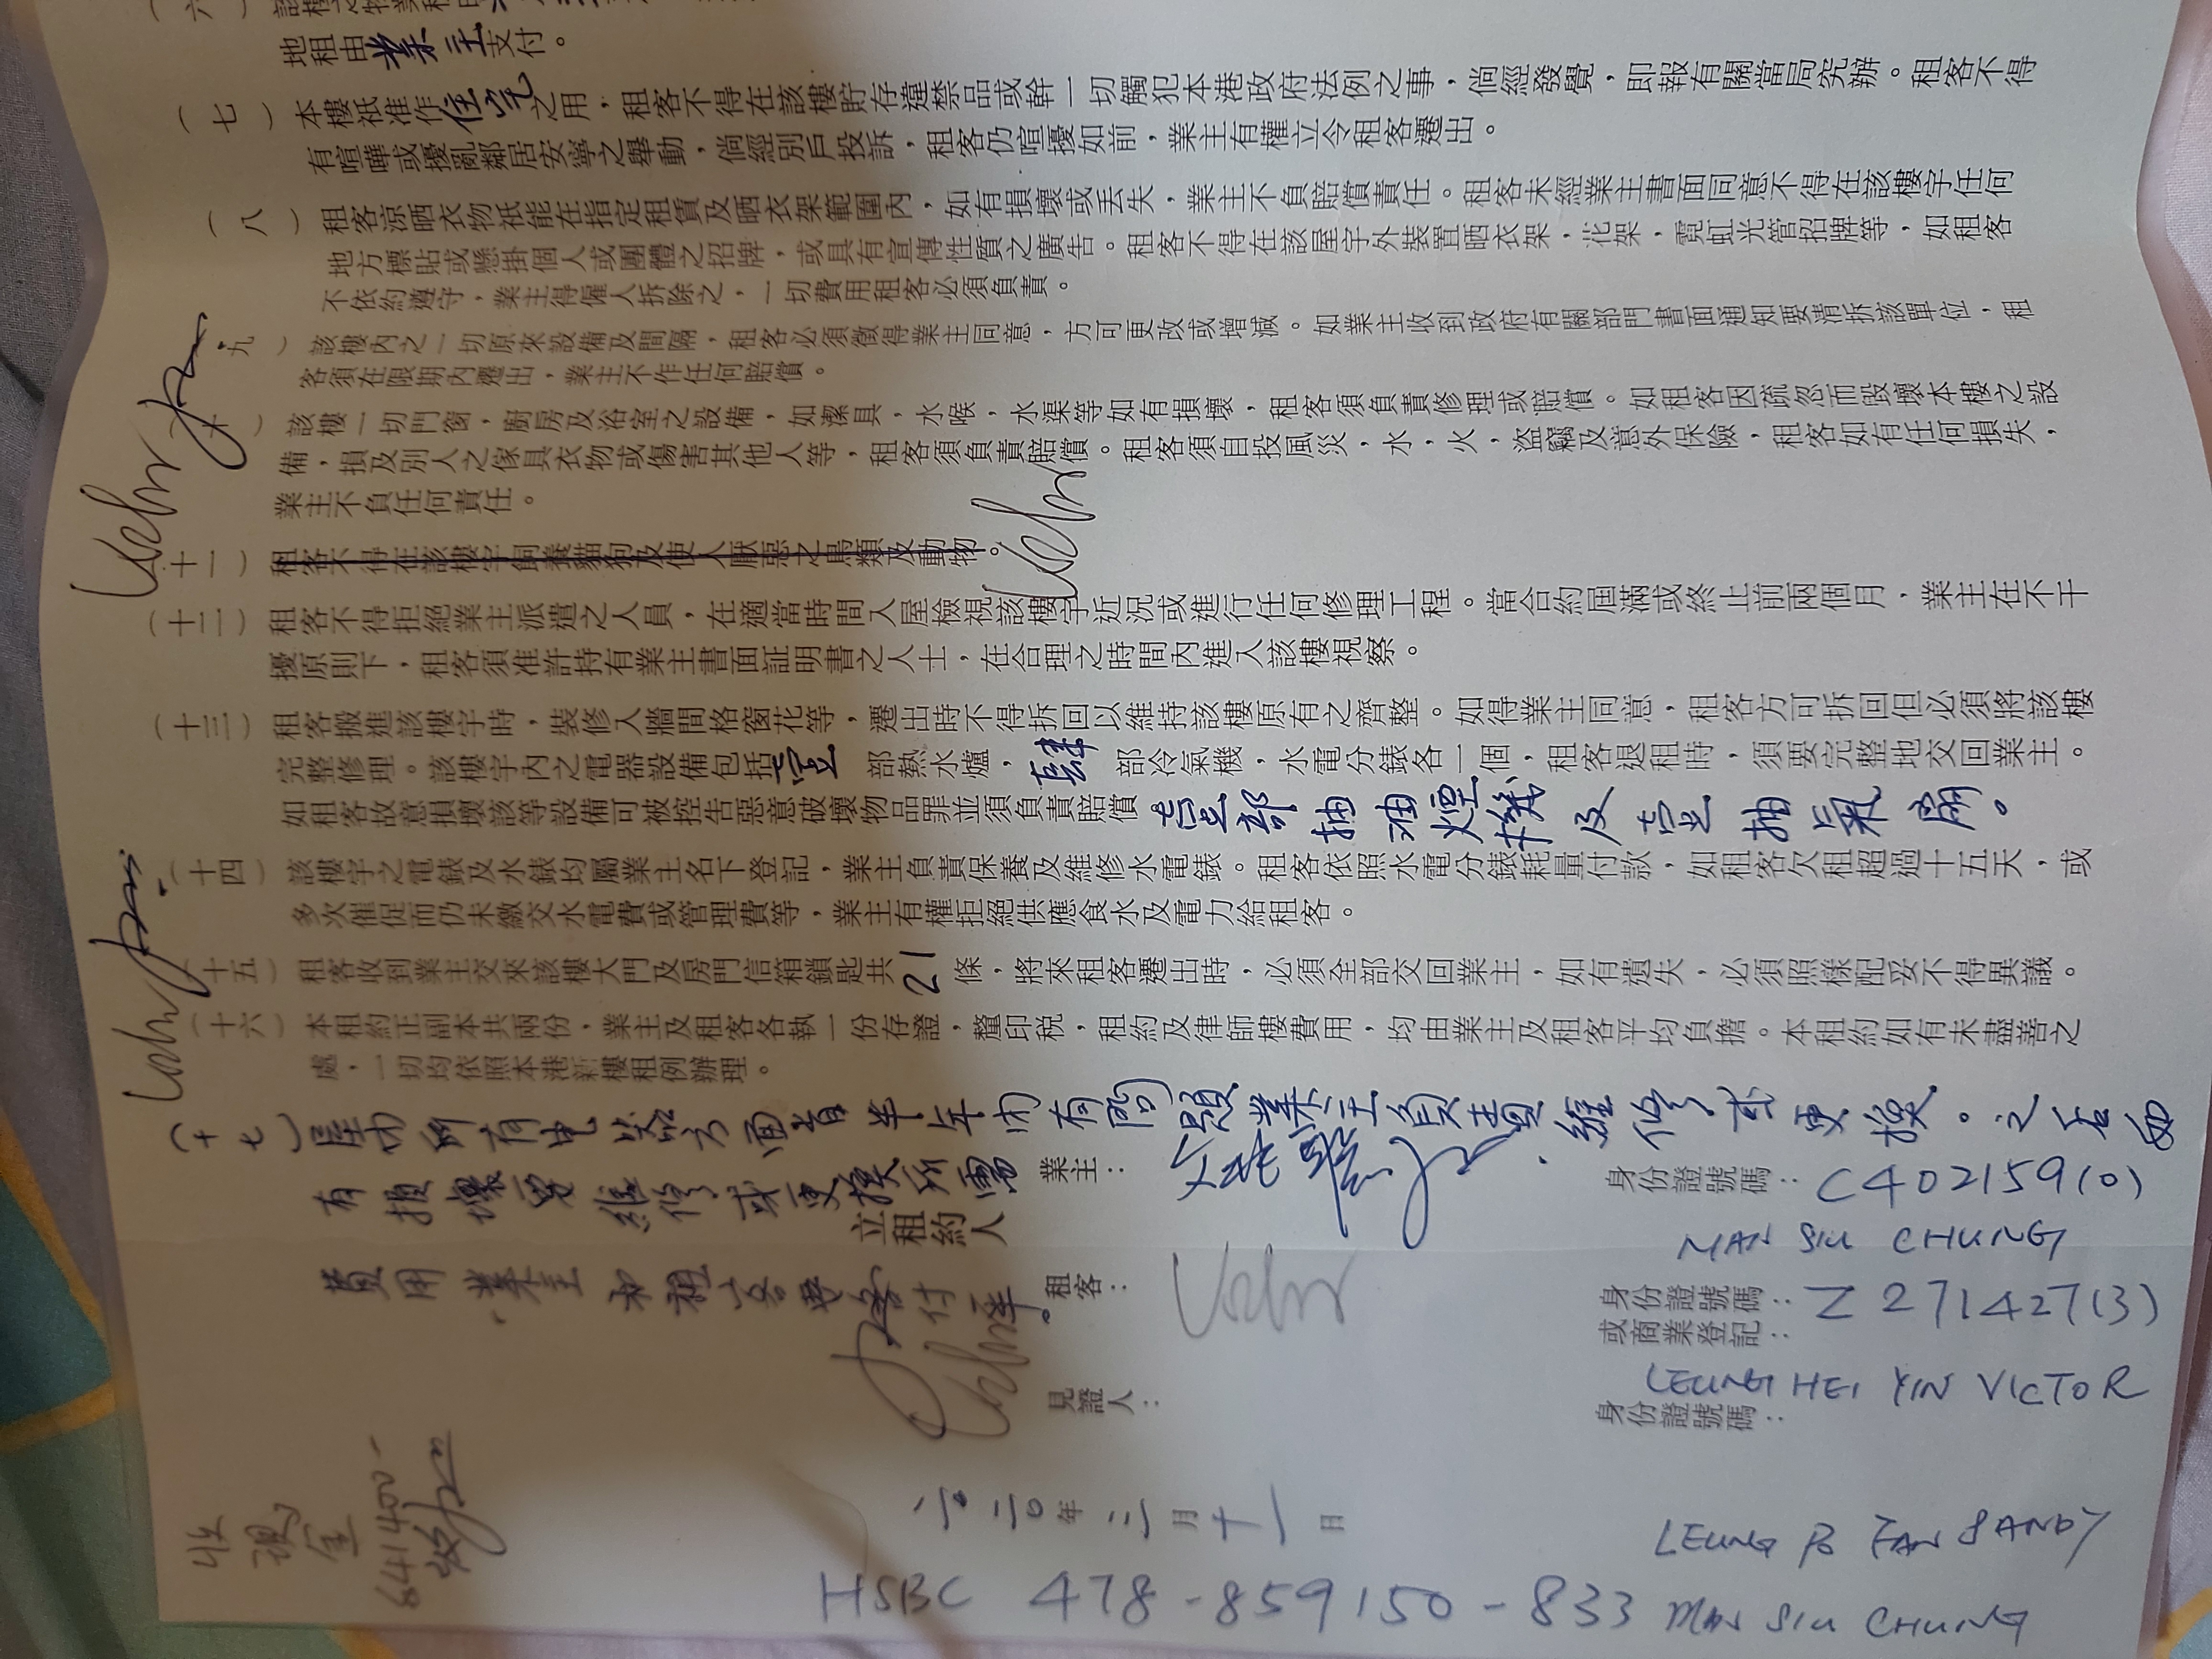 地租由業主支付。
（七） 本樓祇准作住宅之用，租客不得在該樓貯存違禁品或幹一切觸犯本港政府法例之事，倘經發覺，即報有關當局究辦。租客不得
有喧嘩或擾亂鄰居安寧之舉動，倘經別戶投訴，租客仍喧擾如前，業主有權立令租客遷出。
（八） 租客涼晒衣物祇能在指定租賃及晒衣架範圍內，如有損壞或丟失，業主不負賠償責任。租客未經業主書面同意不得在該樓宇任何
地方標貼或懸掛個人或團體之招牌，或具有宣傳性質之廣告。租客不得在該屋宇外裝置晒衣架，花架，霓虹光管招牌等，如租客
不依約遵守，業主得僱人拆除之，一切費用租客必須負責。
九） 該樓內之一切原來設備及間隔，租客必須徵得業主同意，方可更改或增減。如業主收到政府有關部門書面通知要清拆該單位，租
客須在限期內遷出，業主不作任何賠償。
十） 該樓一切門窗，廚房及浴室之設備，如潔具，水喉，水渠等如有損壞，租客須負責修理或賠償。如租客因疏忽而毀壞本樓之設
備，損及別人之傢具衣物或傷害其他人等，租客須負責賠償。租客須自投風災，水，火，盜竊及意外保險，租客如有任何損失，
業主不負任何責任。
十一） 租客不得在該樓宇飼養貓狗及使人厭惡之鳥類及動物。
（十二） 租客不得拒絕業主派遣之人員，在適當時間入屋檢視該樓宇近況或進行任何修理工程。當合約屆滿或終止前兩個月，業主在不干
擾原則下，租客須准許持有業主書面証明書之人士，在合理之時間內進入該樓視察。
（十三） 租客搬進該樓宇時，裝修入牆間格窗花等，遷出時不得拆回以維持該樓原有之齊整。如得業主同意，租客方可拆回但必須將該樓
完整修理。該樓宇內之電器設備包括壹部熱水爐，肆部冷氣機，水電分錶各一個，租客退租時，須要完整地交回業主。
如租客故意損壞該等設備可被控告惡意破壞物品罪並須負責賠償。壹部抽油煙機及壹抽氣扇。
（十四） 該樓宇之電錶及水錶均屬業主名下登記，業主負責保養及維修水電錶。租客依照水電分錶耗量付款，如租客欠租超過十五天，或
多次催促而仍未繳交水電費或管理費等，業主有權拒絕供應食水及電力給租客。
十五） 租客收到業主交來該樓大門及房門信箱鎖匙共21條，將來租客遷出時，必須全部交回業主，如有遺失，必須照樣配妥不得異議。
（十六） 本租約正副本共兩份，業主及租客各執一份存證，釐印税，租約及律師樓費用，均由業主及租客平均負擔。本租約如有未盡善之
處，一切均依照本港新樓租例辦理。
（十七）屋內所有电器方面首半年內有問題業主負責維修或更換。之后如
有損壞要維修或更換所需
費用業主和租客
立租約人
業主：
身份證號碼： C402159(0)
MAN SIU CHUNG
租客：
身份證號碼：
或商業登記： Z271427(3)
LEUNG HEI YIN VICTOR
見證人：
身份證號碼：
收
現金
641400-
二〇二〇年三月十一日
LEUNG PO FAN SANDY
HSBC 478-859150-833 MAN SIU CHUNG